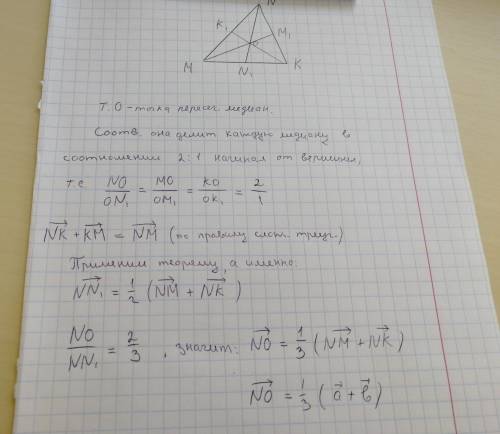 N
K₁ M₁
O
M N₁ K
Т.O - точка перес. медиан.
Соотв. она делит каждую медиану в
соотношении 2:1 начиная от вершины,
т.е. NO/ON₁ = MO/OM₁ = KO/OK₁ = 2/1
NK⃗ + KM⃗ = NM⃗ (по правилу слож. треуг.)
Применим теорему, а именно:
NN₁⃗ = 1/2 (NM⃗ + NK⃗)
NO/NN₁ = 2/3, значит: NO⃗ = 1/3 (NM⃗ + NK⃗)
NO⃗ = 1/3 (a⃗ + b⃗)